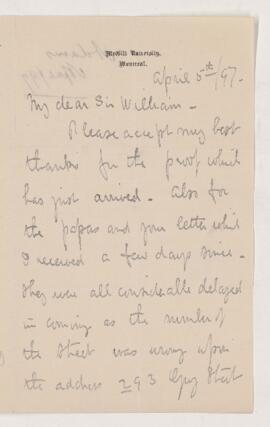 McGill University,
Montreal.
April 5th/97.
My dear Sir William -
Please accept my best
thanks for the proof which
has just arrived. Also for
the papers and your letter which
I received a few days since -
They were all considerable delayed
in coming as the number of
the street was wrong upon
the address 293 Street